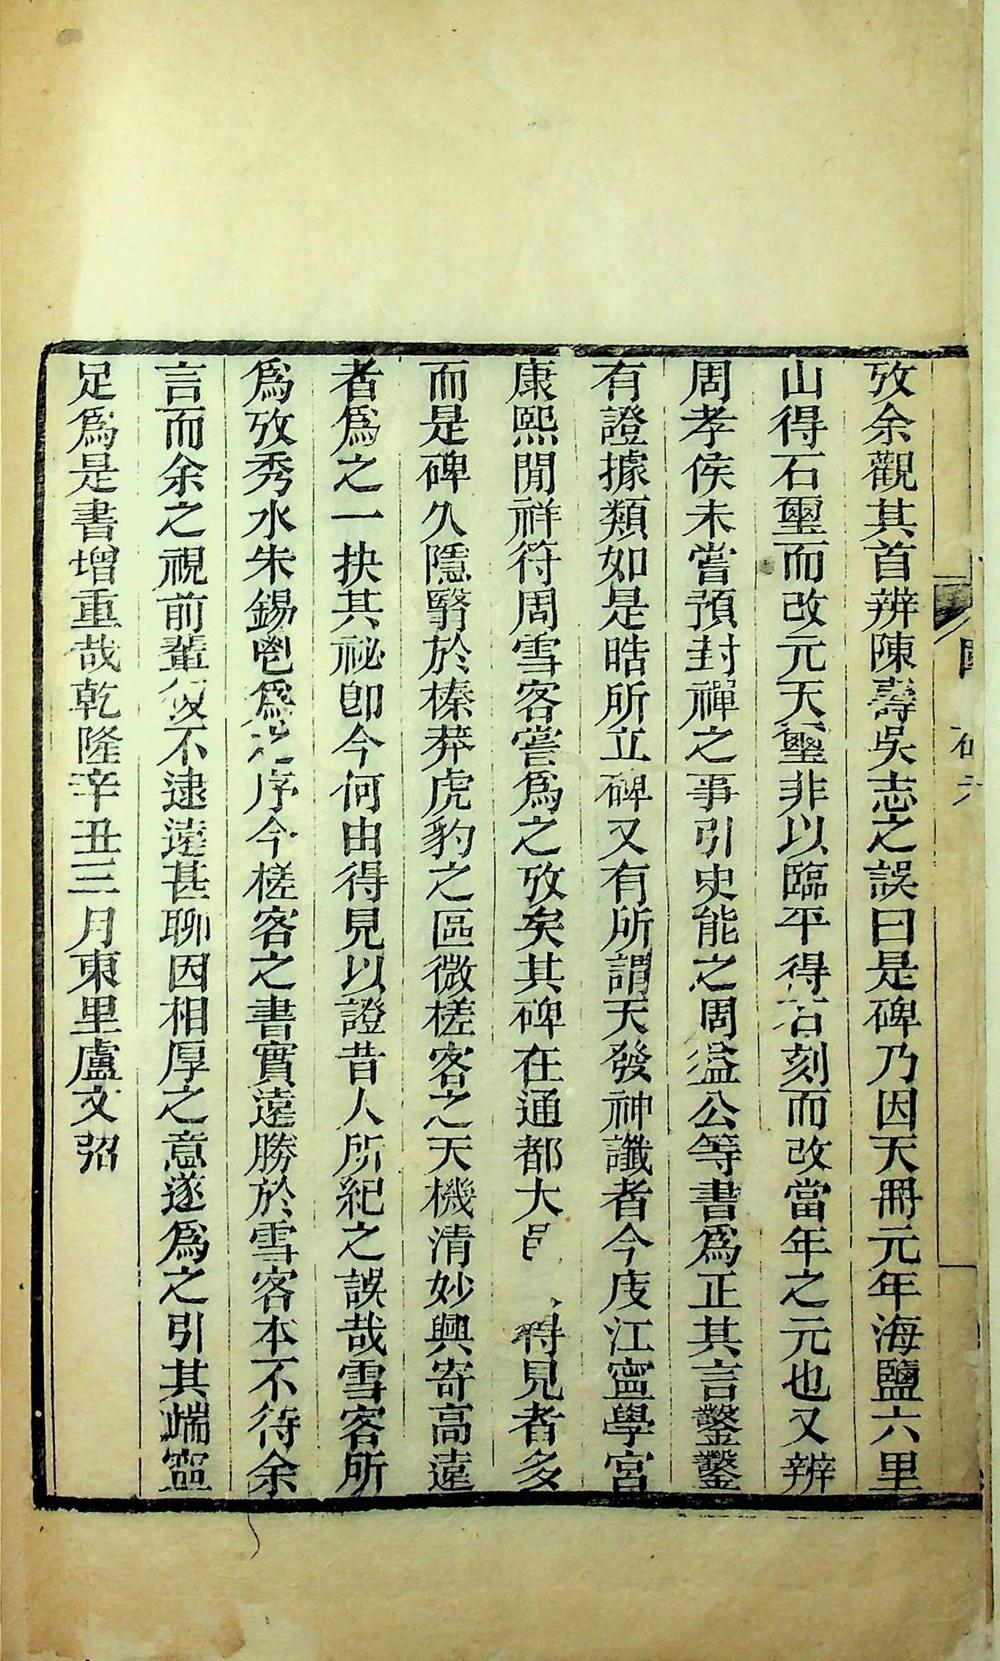 攷余觀其首辨陳壽吳志之誤曰是碑乃因天冊元年海鹽六里
山得石璽而改元天璽非以臨平得石刻而改當年之元也又辨
周孝侯未嘗預封禪之事引史能之周益公等書爲正其言鑿鑿
有證據類如是晧所立碑又有所謂天發神讖者今庋江寧學宮
康熙閒祥符周雪客嘗爲之攷矣其碑在通都大得見者多
而是碑久隱翳於榛莽虎豹之區微槎客之天機清妙興寄高遠
者爲之一抉其祕卽今何由得見以證昔人所紀之誤哉雪客所
爲攷秀水朱錫鬯爲之序今槎客之書實遠勝於雪客本不待余
言而余之視前輩不逮遠甚聊因相厚之意遂爲之引其端寍
足爲是書增重哉乾隆辛丑三月東里盧文弨